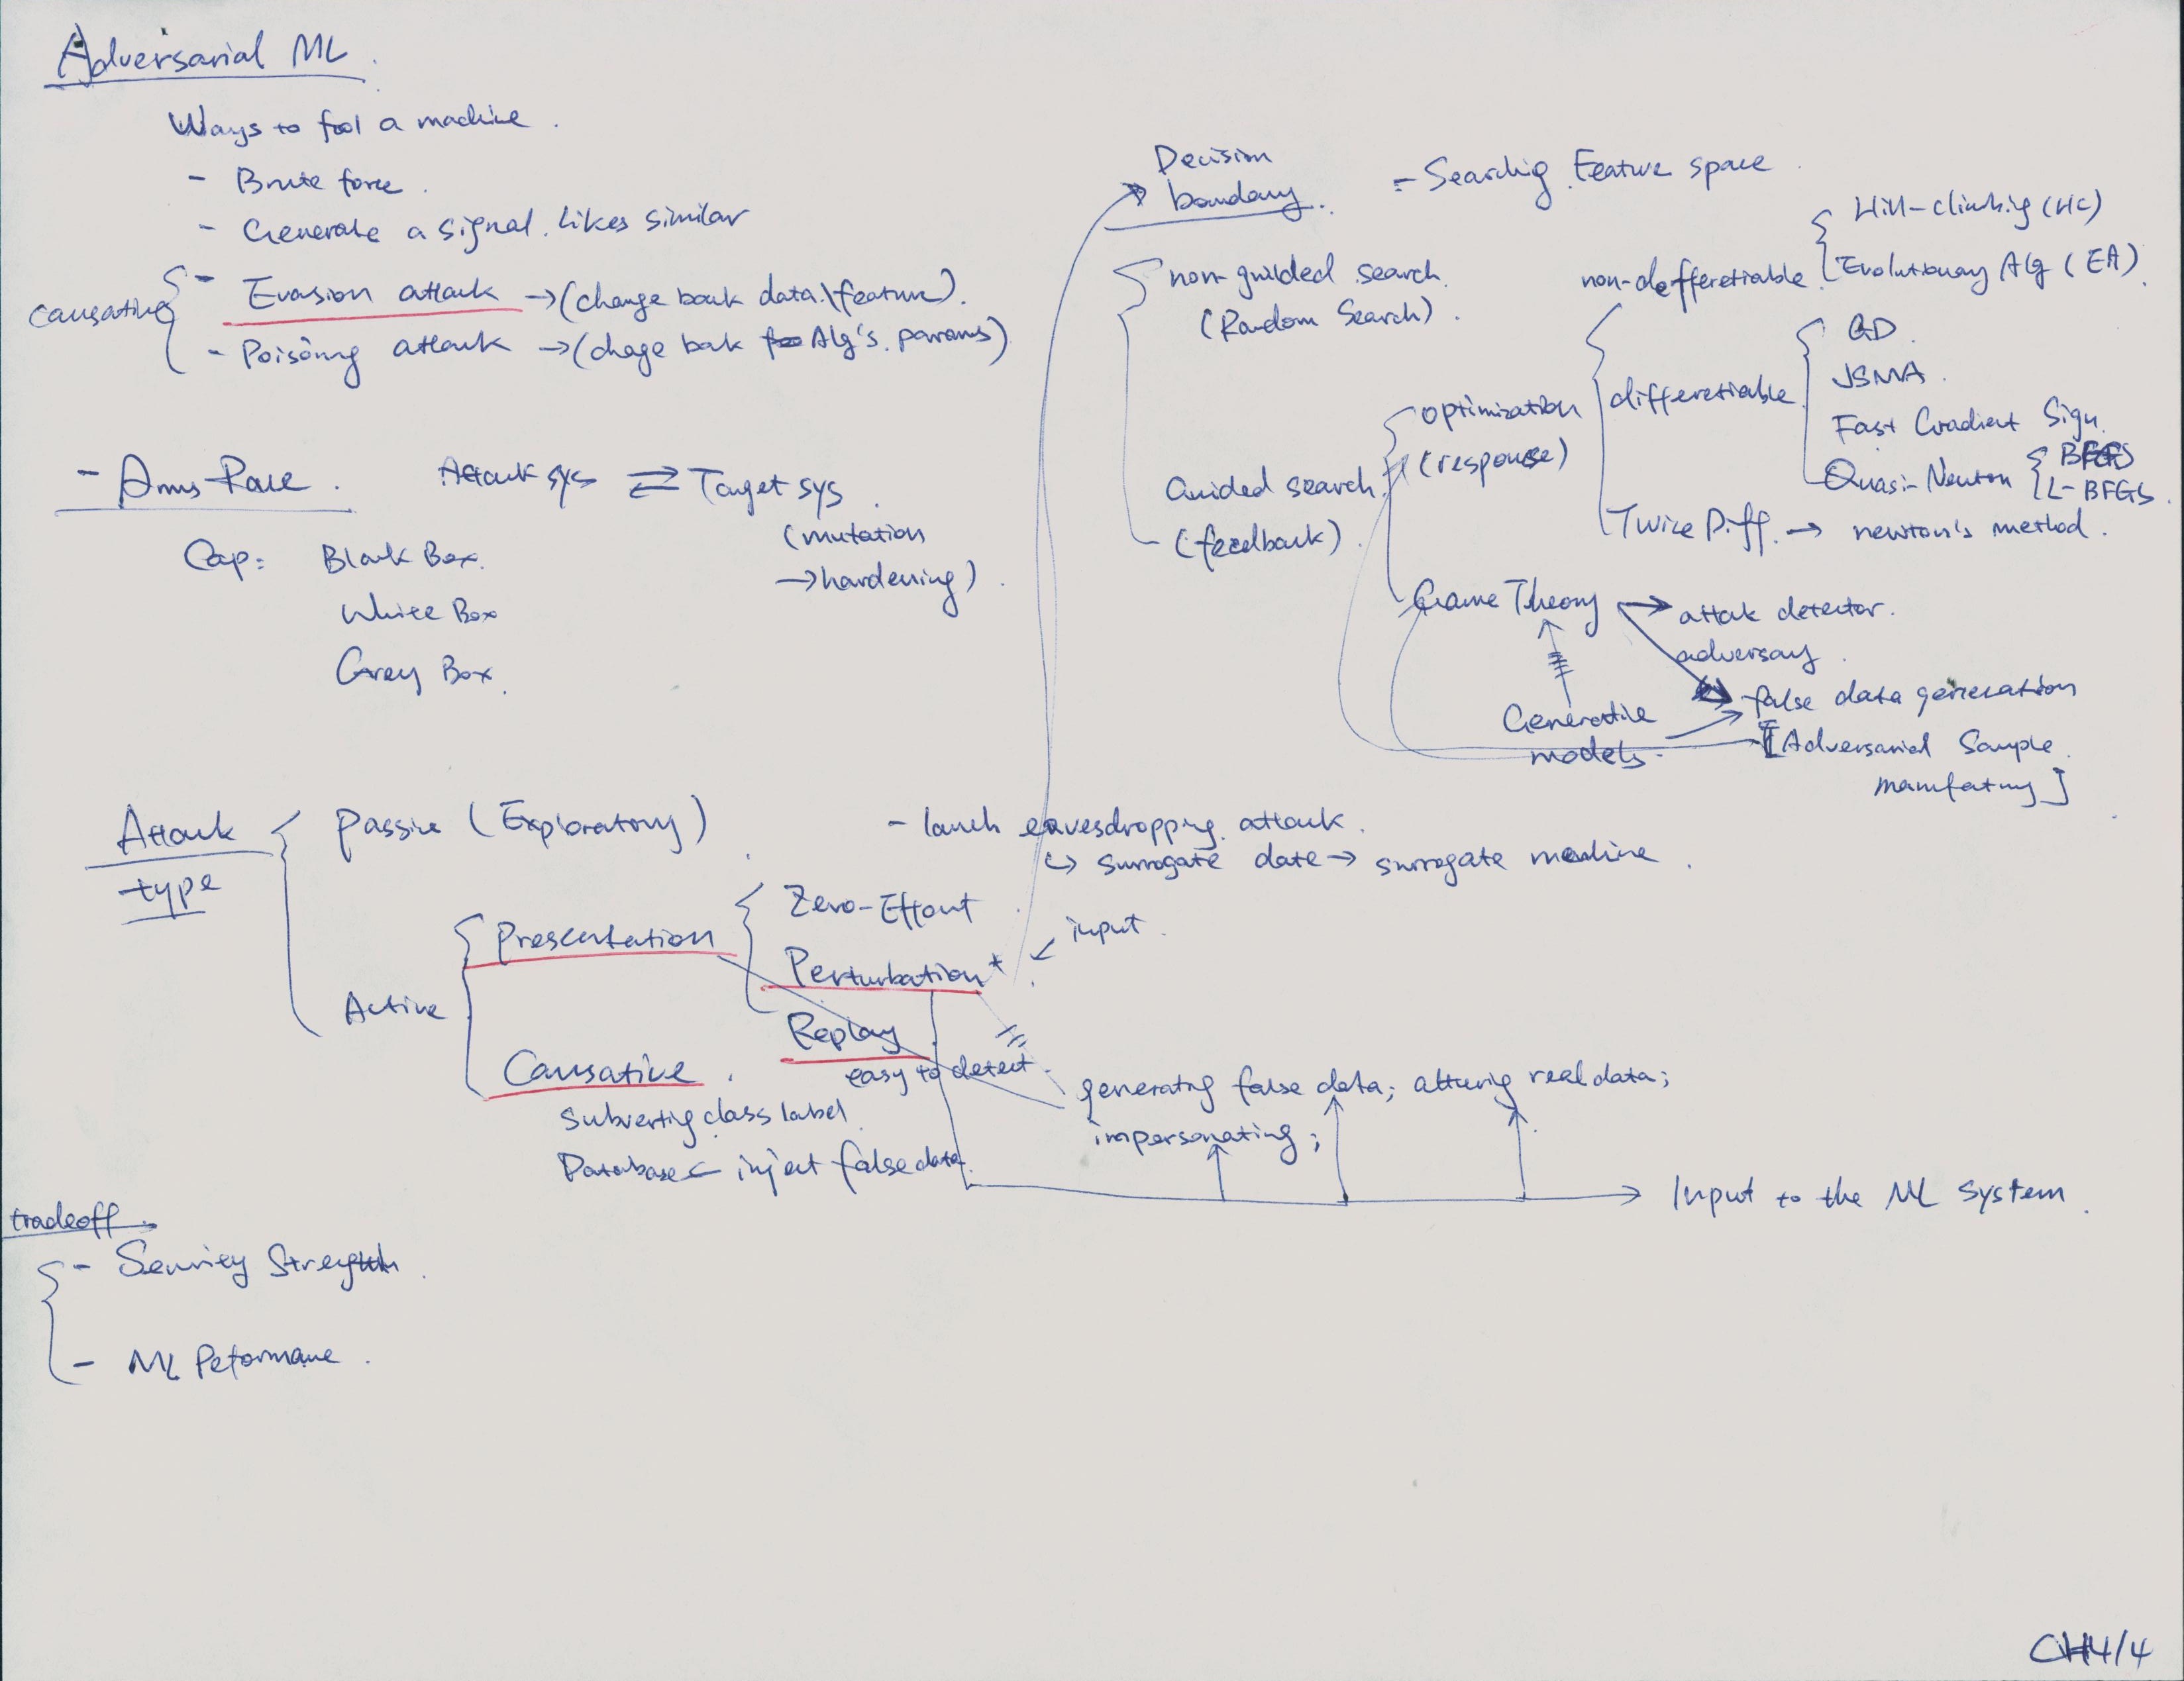 Adversarial ML.
Ways to fool a machine.
- Brute force.
- Generate a signal. likes similar
causative
- Evasion attack → (change bank data \ feature).
- Poisoning attack → (chage bak Alg's. params)
- Arms-Race. Attack sys ⇄ Target sys.
(mutation
→ hardening).
Cap: Black Box.
White Box
Grey Box.
Decision
boundary. - Searchig Feature space.
non-guided search.
(Random Search).
Guided search.
(feedback).
optimization
(response)
non-defferetiable.
Hill-climbig (HC)
Evolutionary Alg (EA).
differetiable.
GD.
JSMA.
Fast Gradient Sign.
Quasi-Newton
BFGS
L-BFGS.
Twice Diff. → newton's method.
Game Theory → attak detector.
adversary.
false data generation
[Adversarial Sample.
]
Generative
models.
Attack
type
Passive (Exploratory).
- lanch eavesdropping attack.
↳ surrogate date → surrogate machine.
Active
Presentation
Zero-Effort
Perturbation * ← input.
Replay
easy to detect.
Causative.
Subvertig class label.
Database ← inject false data.
generatig false data; alterig real data;
impersonating;
→ Input to the ML system.
tradeoff
- Security Strength.
- ML Peformane.
CH4/4